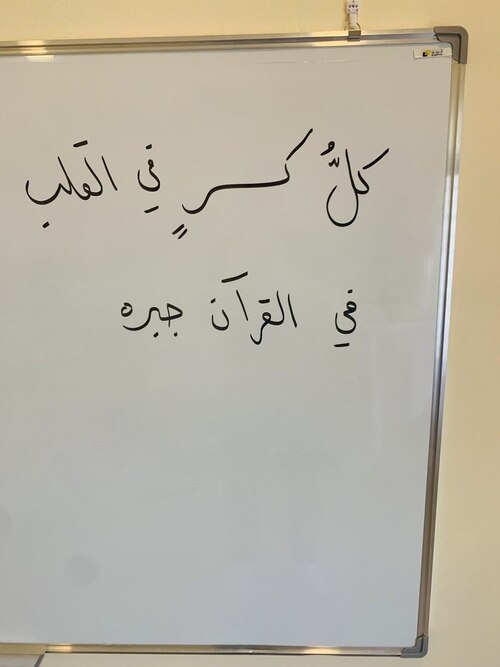 كلُّ كسرٍ في القلب
في القرآن جبره